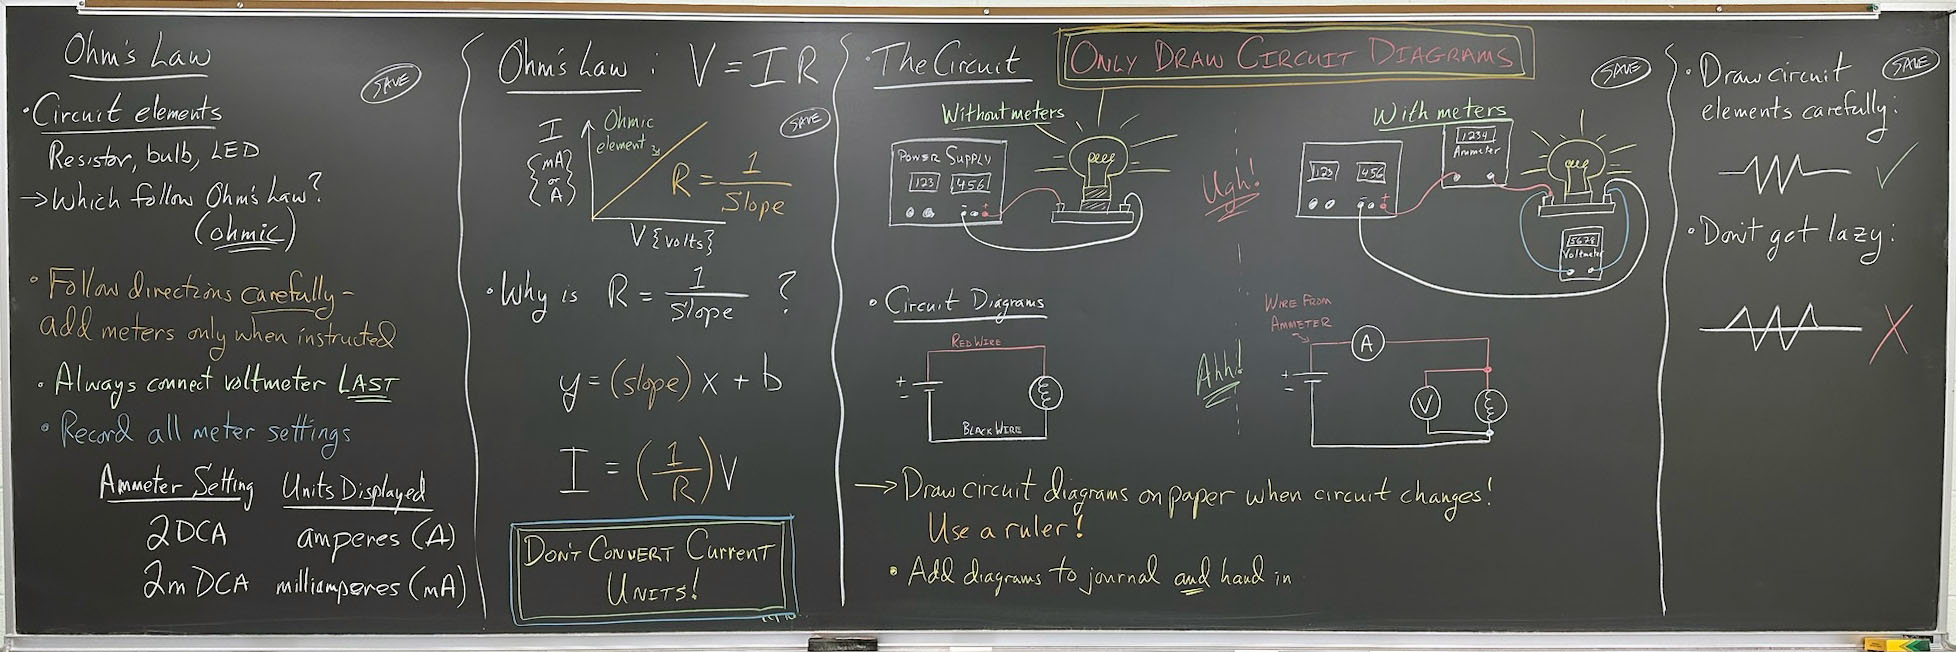 Ohm's Law
SAVE
• Circuit elements
Resistor, bulb, LED
→ Which follow Ohm's Law?
(ohmic)
• Follow directions carefully –
add meters only when instructed
• Always connect voltmeter LAST
• Record all meter settings
Ammeter Setting Units Displayed
2DCA amperes (A)
2mDCA milliamperes (mA)
Ohm's Law : V = IR
SAVE
I
{mA or A}
Ohmic
element
R = 1/Slope
V {volts}
• Why is R = 1/Slope ?
y = (slope) x + b
I = (1/R) V
DON'T CONVERT CURRENT
UNITS!
• The Circuit
ONLY DRAW CIRCUIT DIAGRAMS
SAVE
Without meters
POWER SUPPLY
123 456
- +
Ugh!
With meters
123 456
- +
1234
Ammeter
5678
Voltmeter
• Circuit Diagrams
RED WIRE
+
-
BLACK WIRE
Ahh!
WIRE FROM
AMMETER
A
+
-
V
→ Draw circuit diagrams on paper when circuit changes!
Use a ruler!
• Add diagrams to journal and hand in
• Draw circuit
SAVE
elements carefully:
✓
• Don't get lazy:
X